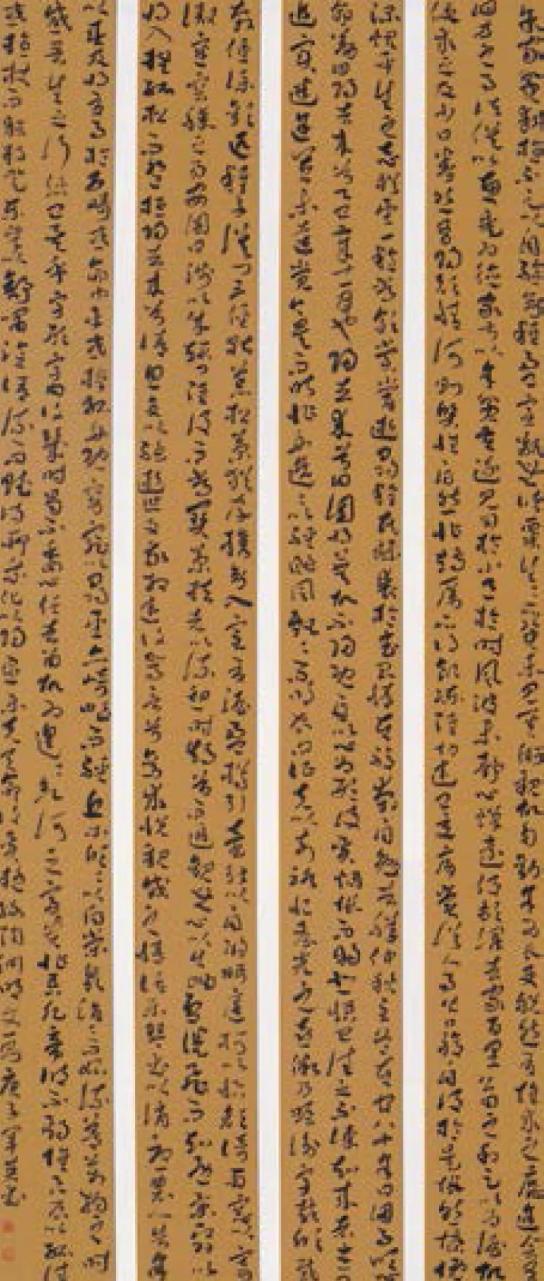 余家貧耕植不足以自給幼稚盈室缾無儲粟生生所資未見其術親故多勸余為長吏脫然有懷求之靡途會有四
方之事諸侯以惠愛為德家叔以余貧苦遂見用於小邑於時風波未靜心憚遠役彭澤去家百里公田之利足以為酒故
便求之及少日眷然有歸歟之情何則質性自然非矯厲所得飢凍雖切違己交病嘗從人事皆口腹自役於是悵然慷慨
深愧平生之志猶望一稔當斂裳宵逝尋程氏妹喪於武昌情在駿奔自免去職仲秋至冬在官八十餘日因事順心
命篇曰歸去來兮乙巳歲十一月也歸去來兮田園將蕪胡不歸既自以心為形役奚惆悵而獨悲悟已往之不諫知來者之可
追實迷途其未遠覺今是而昨非舟遙遙以輕颺風飄飄而吹衣問征夫以前路恨晨光之熹微乃瞻衡宇載欣載
奔僮僕歡迎稚子候門三徑就荒松菊猶存攜幼入室有酒盈樽引壺觴以自酌眄庭柯以怡顏倚南窗以寄
傲審容膝之易安園日涉以成趣門雖設而常關策扶老以流憩時矯首而遐觀雲無心以出岫鳥倦飛而知還景翳翳以
將入撫孤松而盤桓歸去來兮請息交以絕遊世與我而相違復駕言兮焉求悅親戚之情話樂琴書以消憂農人告余
以春及將有事於西疇或命巾車或棹孤舟既窈窕以尋壑亦崎嶇而經丘木欣欣以向榮泉涓涓而始流善萬物之得時
感吾生之行休已矣乎寓形宇內復幾時曷不委心任去留胡為乎遑遑欲何之富貴非吾願帝鄉不可期懷良辰以孤往
或植杖而耘耔登東皋以舒嘯臨清流而賦詩聊乘化以歸盡樂夫天命復奚疑